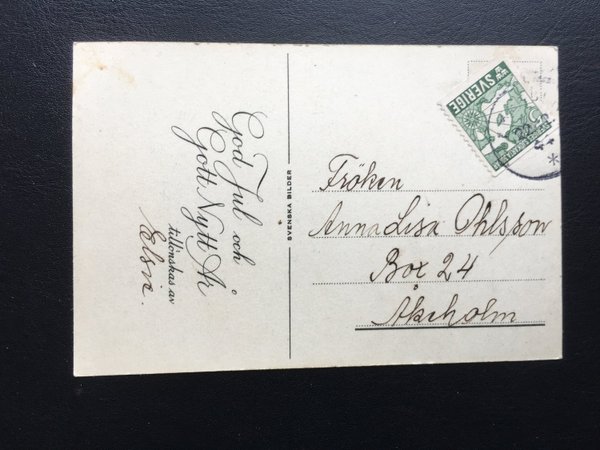 God Jul och
Gott Nytt År
tillönskas av
Elsie.
SVENSKA BILDER
SVERIGE
22.12
Fröken
AnnaLisa Ohlsson
Box 24
Åkeholm